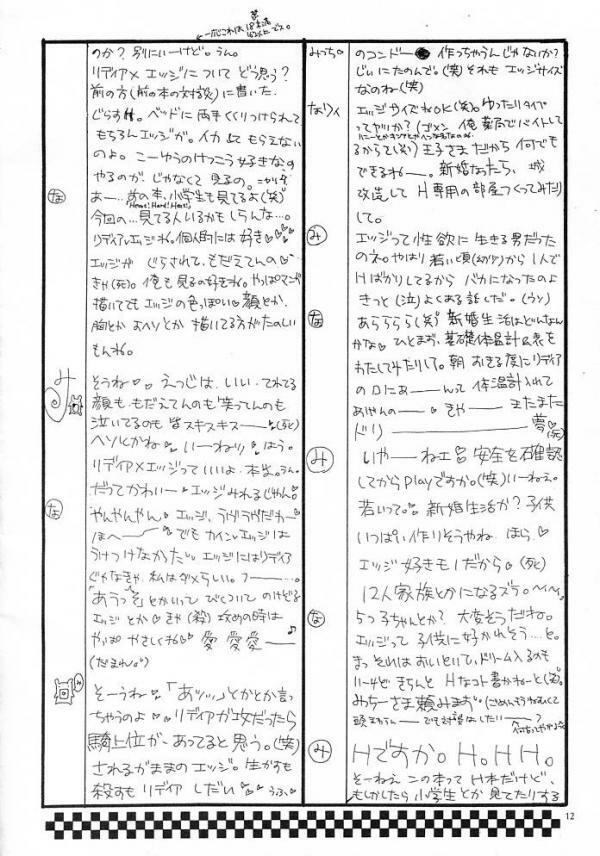 のか？別にいーけど。うん。
リディア×エッジについて どう思う？
前の方(前の本の対談)に書いた
ベッドに両手くくりつけられて
もちろんエッジが。イカ してもらえない
のよ。こーゆうのけっこう好きなの
やるのが じゃなくて 見るの。
な
あー…前の本、小学生も見てるよ(笑)
今回の…見てる人いるかもしらんな…。
リディア×エッジね。個人的には好き♡
エッジが されて、もだえてんの
きゃ(死)。俺も見るの好きね。やっぱマンガ
描いてても エッジの色っぽい♡顔とか、
胸とか おヘソとか 描いてる方がたのしい
もんね。
み
そうね♡♡ えっじは、いい。てれてる
顔も、もだえてんのも笑ってんのも
泣いてるのも 皆スキスキスー(死)
ヘソとかね♡ いーねぇ♡ ほう。
リディア×エッジっていいよ、本当。うん。
だってかわいー♡エッジみれるじゃん。
な
やんやんやん♡ エッジ、
ほへー でも カイン×エッジは
うけつけなかった。エッジにはリディア
じゃなきゃ、私はダメらしい。フー…。
「あうっ」とかいって びくついてるのけぞる
エッジ とか♡ きゃ(殺) 攻めの時は
やっぱ やさしくね♡ 愛 愛 愛ー♪
(だまれ。)
み
そーうね♡「あッッ」とかとか言っ
ちゃうのよ♡♡リディアが攻だったら
騎上位が、あってると思う。(笑)
されるがままのエッジ。生かすも
殺すも リディア しだい♡♡ うふ♡
みっちー
のコンドー● 作っちゃうんじゃないか？
じいにたのんで。(笑)それも エッジサイズ
なのね(笑)
エッジサイズね OK(笑)。ゆったりタイプ
ってヤツか？(ゴメン 俺 薬局でバイトして
るからさ(笑)) 王子さまだから 何でも
できるねー。新婚なったら、城
改造して H専用の部屋つくってみたり
して。
み
エッジって性欲に 生きる男だった
のネ。
Hばかりしてるから バカになったのよ
きっと(泣)よくある話しだ。(ウン)
な
あらららら(笑)新婚生活はどんなん
かな♡ ひとまず、基礎体温計&表を
わたしてみたりして。朝 おきる度にリディア
の口にあーーんって 体温計入れて
あげんのー♡ きゃーー またまた
ドリーーーーー夢♡(死)
み
いやーーねエ♡ 安全を確認
してからplayですか。(笑)いーねぇ。
若いって。♡ 新婚生活か？子供
いっぱい 作りそうやね ほら♡
エッジ 好きモノだから♡(死)
12人家族とかになるズラ。へへへ。
な
5つ子ちゃんとか？ 大変そうだね。
エッジって 子供に好かれそう…と。
まっ それはおいといて、ドリーム入るのも
いーけど きちんと Hなコト書かねーと(笑)。
みちーさま頼みます。
み
Hですか。H。HH。
そーねえ この本ってH本だけど、
もしかしたら小学生とか 見てたりする
12